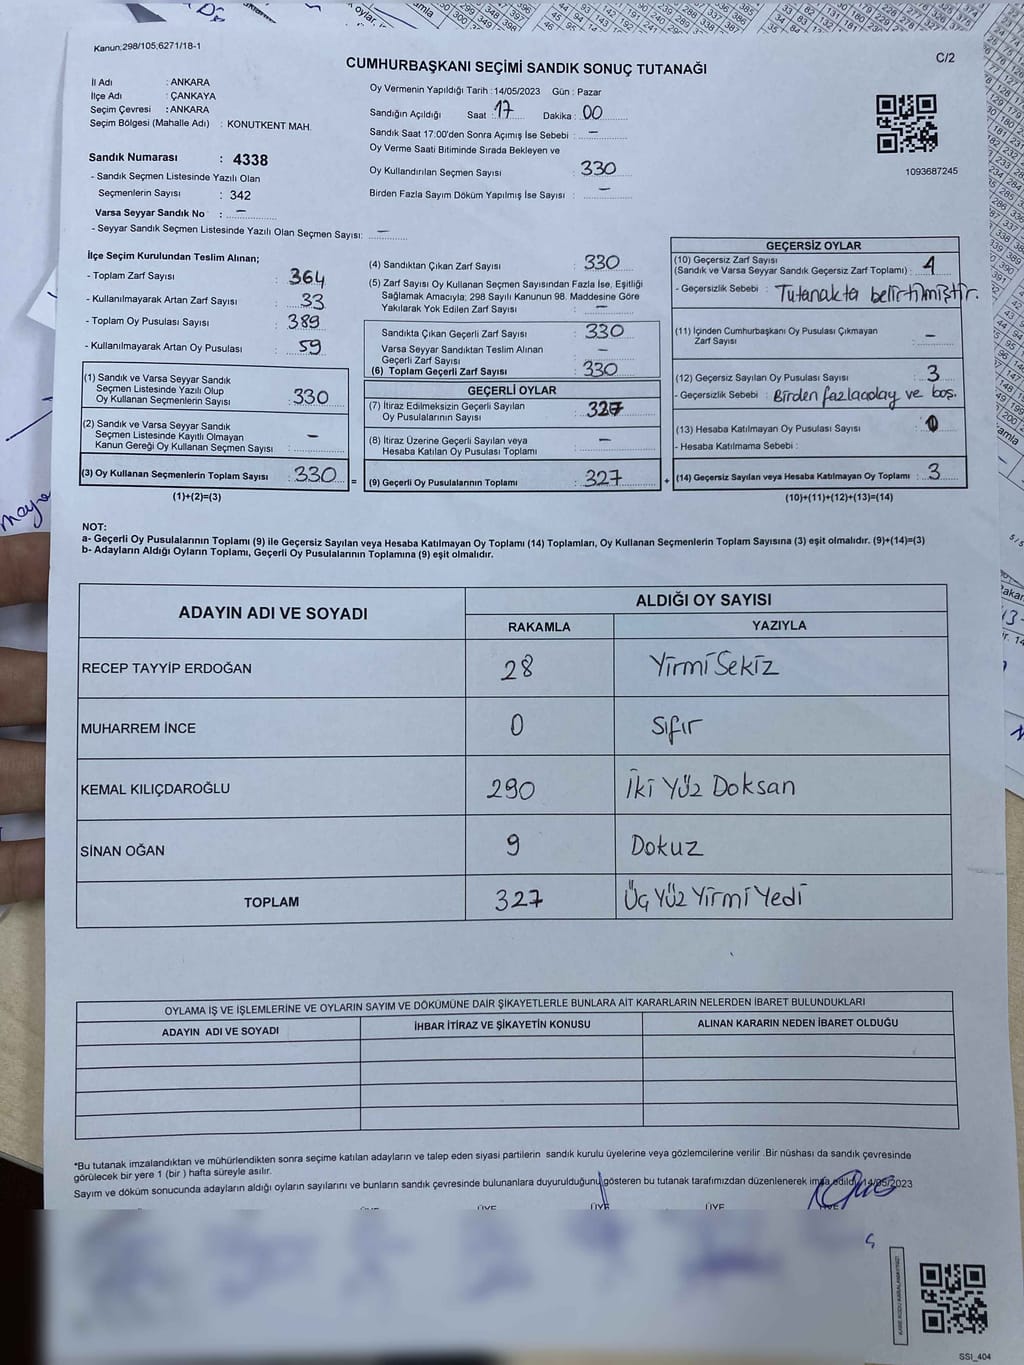 Kanun:298/105,6271/18-1
C/2
CUMHURBAŞKANI SEÇİMİ SANDIK SONUÇ TUTANAĞI
İl Adı : ANKARA
İlçe Adı : ÇANKAYA
Seçim Çevresi : ANKARA
Seçim Bölgesi (Mahalle Adı) : KONUTKENT MAH.
Sandık Numarası : 4338
- Sandık Seçmen Listesinde Yazılı Olan
Seçmenlerin Sayısı : 342
Varsa Seyyar Sandık No : -
- Seyyar Sandık Seçmen Listesinde Yazılı Olan Seçmen Sayısı: -
Oy Vermenin Yapıldığı Tarih : 14/05/2023 Gün : Pazar
Sandığın Açıldığı Saat : 17 Dakika : 00
Sandık Saat 17:00'den Sonra Açımış İse Sebebi : -
Oy Verme Saati Bitiminde Sırada Bekleyen ve
Oy Kullandırılan Seçmen Sayısı : 330
Birden Fazla Sayım Döküm Yapılmış İse Sayısı : -
1093687245
İlçe Seçim Kurulundan Teslim Alınan;
- Toplam Zarf Sayısı : 364
- Kullanılmayarak Artan Zarf Sayısı : 33
- Toplam Oy Pusulası Sayısı : 389
- Kullanılmayarak Artan Oy Pusulası : 59
(1) Sandık ve Varsa Seyyar Sandık
Seçmen Listesinde Yazılı Olup
Oy Kullanan Seçmenlerin Sayısı : 330
(2) Sandık ve Varsa Seyyar Sandık
Seçmen Listesinde Kayıtlı Olmayan
Kanun Gereği Oy Kullanan Seçmen Sayısı : -
(3) Oy Kullanan Seçmenlerin Toplam Sayısı : 330 =
(1)+(2)=(3)
(4) Sandıktan Çıkan Zarf Sayısı : 330
(5) Zarf Sayısı Oy Kullanan Seçmen Sayısından Fazla İse, Eşitliği
Sağlamak Amacıyla; 298 Sayılı Kanunun 98. Maddesine Göre
Yakılarak Yok Edilen Zarf Sayısı : -
Sandıkta Çıkan Geçerli Zarf Sayısı : 330
Varsa Seyyar Sandıktan Teslim Alınan
Geçerli Zarf Sayısı : -
(6) Toplam Geçerli Zarf Sayısı : 330
GEÇERLİ OYLAR
(7) İtiraz Edilmeksizin Geçerli Sayılan
Oy Pusulalarının Sayısı : 327
(8) İtiraz Üzerine Geçerli Sayılan veya
Hesaba Katılan Oy Pusulası Toplamı : -
(9) Geçerli Oy Pusulalarının Toplamı : 327 +
GEÇERSİZ OYLAR
(10) Geçersiz Zarf Sayısı
(Sandık ve Varsa Seyyar Sandık Geçersiz Zarf Toplamı) :
- Geçersizlik Sebebi : Tutanakta belirtilmiştir.
(11) İçinden Cumhurbaşkanı Oy Pusulası Çıkmayan
Zarf Sayısı : -
(12) Geçersiz Sayılan Oy Pusulası Sayısı : 3
- Geçersizlik Sebebi : Birden fazla oy ve boş.
(13) Hesaba Katılmayan Oy Pusulası Sayısı : 0
- Hesaba Katılmama Sebebi :
(14) Geçersiz Sayılan veya Hesaba Katılmayan Oy Toplamı : 3
(10)+(11)+(12)+(13)=(14)
NOT:
a- Geçerli Oy Pusulalarının Toplamı (9) ile Geçersiz Sayılan veya Hesaba Katılmayan Oy Toplamı (14) Toplamları, Oy Kullanan Seçmenlerin Toplam Sayısına (3) eşit olmalıdır. (9)+(14)=(3)
b- Adayların Aldığı Oyların Toplamı, Geçerli Oy Pusulalarının Toplamına (9) eşit olmalıdır.
ADAYIN ADI VE SOYADI ALDIĞI OY SAYISI
RAKAMLA YAZIYLA
RECEP TAYYİP ERDOĞAN 28 Yirmi Sekiz
MUHARREM İNCE 0 Sıfır
KEMAL KILIÇDAROĞLU 290 İki Yüz Doksan
SİNAN OĞAN 9 Dokuz
TOPLAM 327 Üç Yüz Yirmi Yedi
OYLAMA İŞ VE İŞLEMLERİNE VE OYLARIN SAYIM VE DÖKÜMÜNE DAİR ŞİKAYETLERLE BUNLARA AİT KARARLARIN NELERDEN İBARET BULUNDUKLARI
ADAYIN ADI VE SOYADI İHBAR İTİRAZ VE ŞİKAYETİN KONUSU ALINAN KARARIN NEDEN İBARET OLDUĞU
*Bu tutanak imzalandıktan ve mühürlendikten sonra seçime katılan adayların ve talep eden siyasi partilerin sandık kurulu üyelerine veya gözlemcilerine verilir .Bir nüshası da sandık çevresinde
görülecek bir yere 1 (bir ) hafta süreyle asılır.
Sayım ve döküm sonucunda adayların aldığı oyların sayılarını ve bunların sandık çevresinde bulunanlara duyurulduğunu gösteren bu tutanak tarafımızdan düzenlenerek imza edildi. 14/05/2023
ÜYE ÜYE ÜYE ÜYE ÜYE
SSI_404